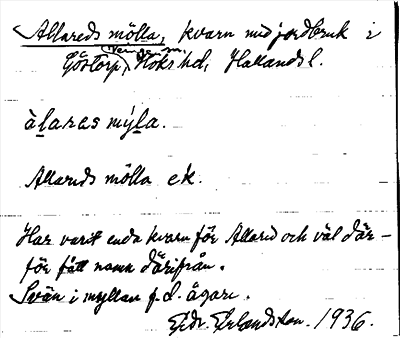 Allareds mölla, kvarn med jordbruk i
Göstorp, Höks hd, Hallands l.
àlaras mýla.
Allareds mölla ek.
Har varit enda kvarn för Allared och väl där-
för fått namn därifrån.
Svän i myllan f.d. ägare.
Erlandsson. 1936.